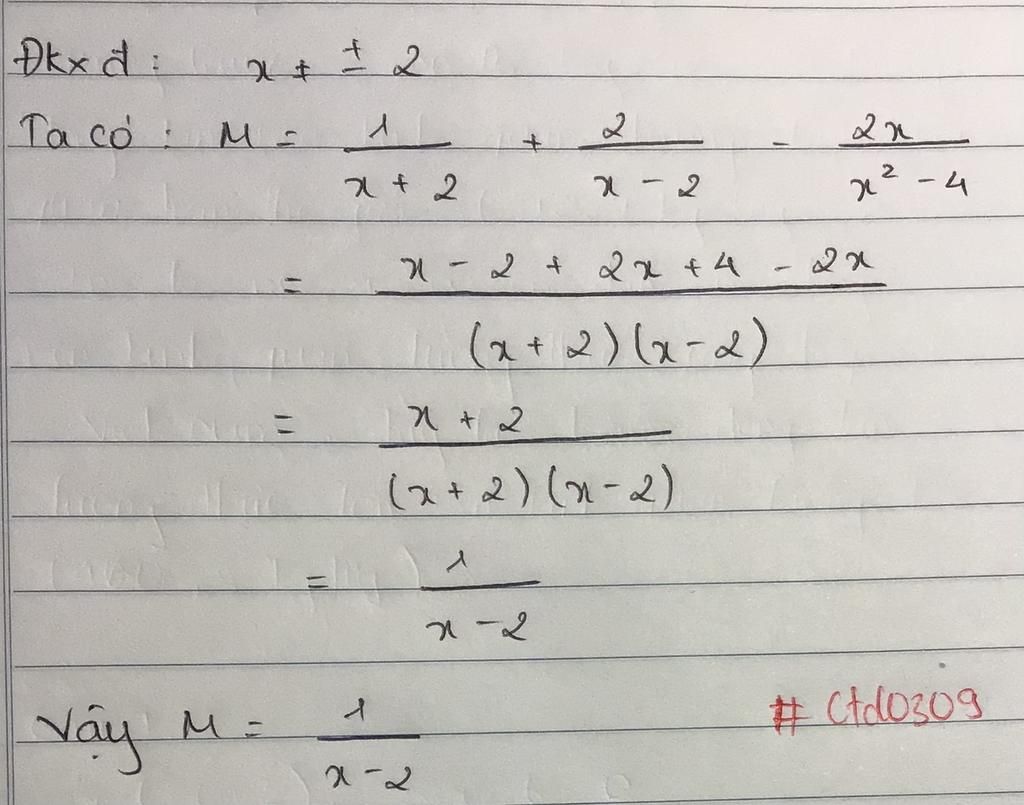 Đkxđ: x ≠ ± 2
Ta có: M = 1/(x + 2) + 2/(x - 2) - 2x/(x² - 4)
= (x - 2 + 2x + 4 - 2x)/((x + 2)(x - 2))
= (x + 2)/((x + 2)(x - 2))
= 1/(x - 2)
Vậy M = 1/(x - 2)
# Ctd0309